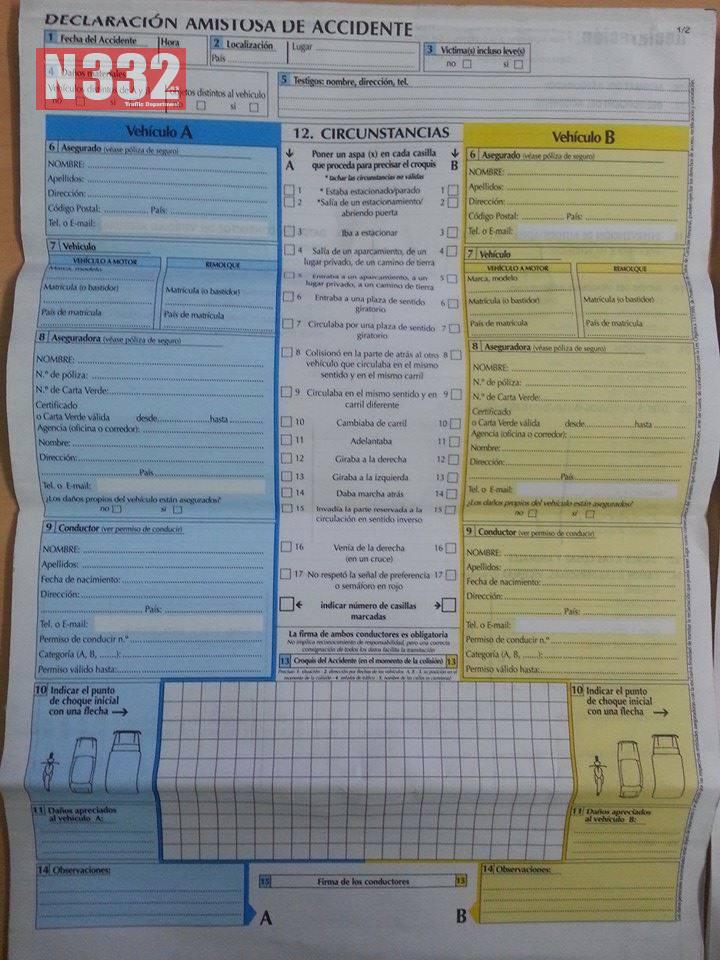 DECLARACIÓN AMISTOSA DE ACCIDENTE
1/2
1 Fecha del Accidente Hora
2 Localización Lugar
País
3 Víctima(s) incluso leve(s)
no si
N332.es
Traffic Department
4 Daños materiales
Vehículos distintos de A y B objetos distintos al vehículo
no si no si
5 Testigos: nombre, dirección, tel.
Vehículo A
6 Asegurado (véase póliza de seguro)
NOMBRE:
Apellidos:
Dirección:
Código Postal: País:
Tel. o E-mail:
7 Vehículo
VEHÍCULO A MOTOR REMOLQUE
Marca, modelo
Matrícula (o bastidor) Matrícula (o bastidor)
País de matrícula País de matrícula
8 Aseguradora (véase póliza de seguro)
NOMBRE:
N.º de póliza:
N.º de Carta Verde:
Certificado
o Carta Verde válida desde hasta
Agencia (oficina o corredor):
Nombre:
Dirección:
País
Tel. o E-mail:
¿Los daños propios del vehículo están asegurados?
no si
9 Conductor (ver permiso de conducir)
NOMBRE:
Apellidos:
Fecha de nacimiento:
Dirección:
País:
Tel. o E-mail:
Permiso de conducir n.º
Categoría (A, B, ......):
Permiso válido hasta:
10 Indicar el punto
de choque inicial
con una flecha →
11 Daños apreciados
al vehículo A:
14 Observaciones:
12. CIRCUNSTANCIAS
A B
Poner un aspa (x) en cada casilla
que proceda para precisar el croquis
* tachar las circunstancias no válidas
1 * Estaba estacionado/parado 1
2 *Salía de un estacionamiento/ 2
abriendo puerta
3 Iba a estacionar 3
4 Salía de un aparcamiento, de un 4
lugar privado, de un camino de tierra
5 Entraba a un aparcamiento, a un 5
lugar privado, a un camino de tierra
6 Entraba a una plaza de sentido 6
giratorio
7 Circulaba por una plaza de sentido 7
giratorio
8 Colisionó en la parte de atrás al otro 8
vehículo que circulaba en el mismo
sentido y en el mismo carril
9 Circulaba en el mismo sentido y en 9
carril diferente
10 Cambiaba de carril 10
11 Adelantaba 11
12 Giraba a la derecha 12
13 Giraba a la izquierda 13
14 Daba marcha atrás 14
15 Invadía la parte reservada a la 15
circulación en sentido inverso
16 Venía de la derecha 16
(en un cruce)
17 No respetó la señal de preferencia 17
o semáforo en rojo
← indicar número de casillas →
marcadas
La firma de ambos conductores es obligatoria
No implica reconocimiento de responsabilidad, pero una correcta
consignación de todos los datos facilita la tramitación
13 Croquis del Accidente (en el momento de la colisión) 13
15 Firma de los conductores 15
A B
Vehículo B
6 Asegurado (véase póliza de seguro)
NOMBRE:
Apellidos:
Dirección:
Código Postal: País:
Tel. o E-mail:
7 Vehículo
VEHÍCULO A MOTOR REMOLQUE
Marca, modelo
Matrícula (o bastidor) Matrícula (o bastidor)
País de matrícula País de matrícula
8 Aseguradora (véase póliza de seguro)
NOMBRE:
N.º de póliza:
N.º de Carta Verde:
Certificado
o Carta Verde válida desde hasta
Agencia (oficina o corredor):
Nombre:
Dirección:
País
Tel. o E-mail:
¿Los daños propios del vehículo están asegurados?
no si
9 Conductor (ver permiso de conducir)
NOMBRE:
Apellidos:
Fecha de nacimiento:
Dirección:
País:
Tel. o E-mail:
Permiso de conducir n.º
Categoría (A, B, ......):
Permiso válido hasta:
10 Indicar el punto
de choque inicial
con una flecha →
11 Daños apreciados
al vehículo B:
14 Observaciones: